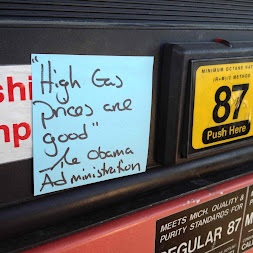 "High Gas
prices are
good"
The Obama
Administration
shi
mp
MINIMUM OCTANE RAT
(R+M)/2 METHOD
87
Push Here
MEETS MICH. QUALITY &
PURITY STANDARDS FOR
REGULAR 87